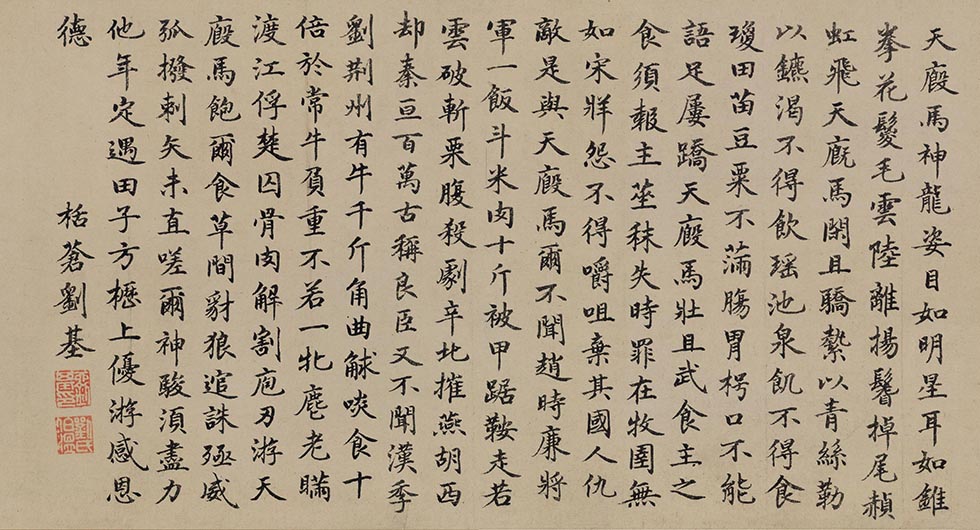 天廄馬神龍姿目如明星耳如錐
拳花鬉毛雲陸離揚鬐掉尾赬
虹飛天廐馬閑且驕縶以青絲勒
以鑣渴不得飲瑶池泉飢不得食
瓊田苗豆粟不滿腸胃枵口不能
語足屢蹻天廄馬壯且武食主之
食須報主莝秣失時罪在牧圉無
如宋牂怨不得嚼咀棄其國人仇
敵是與天廄馬爾不聞趙時廉將
軍一飯斗米肉十斤被甲踞鞍走若
雲破斬栗腹殺劇辛北摧燕胡西
却秦亘百萬古稱良臣又不聞漢季
劉荊州有牛千斤角曲觩啖食十
倍於常牛負重不若一牝麀老瞞
渡江俘楚囚骨肉解割庖刃游天
廄馬飽爾食草間豺狼追誅殛威
弧撥剌矢未直嗟爾神駿湏盡力
他年定遇田子方櫪上優游感恩
德 栝蒼劉基